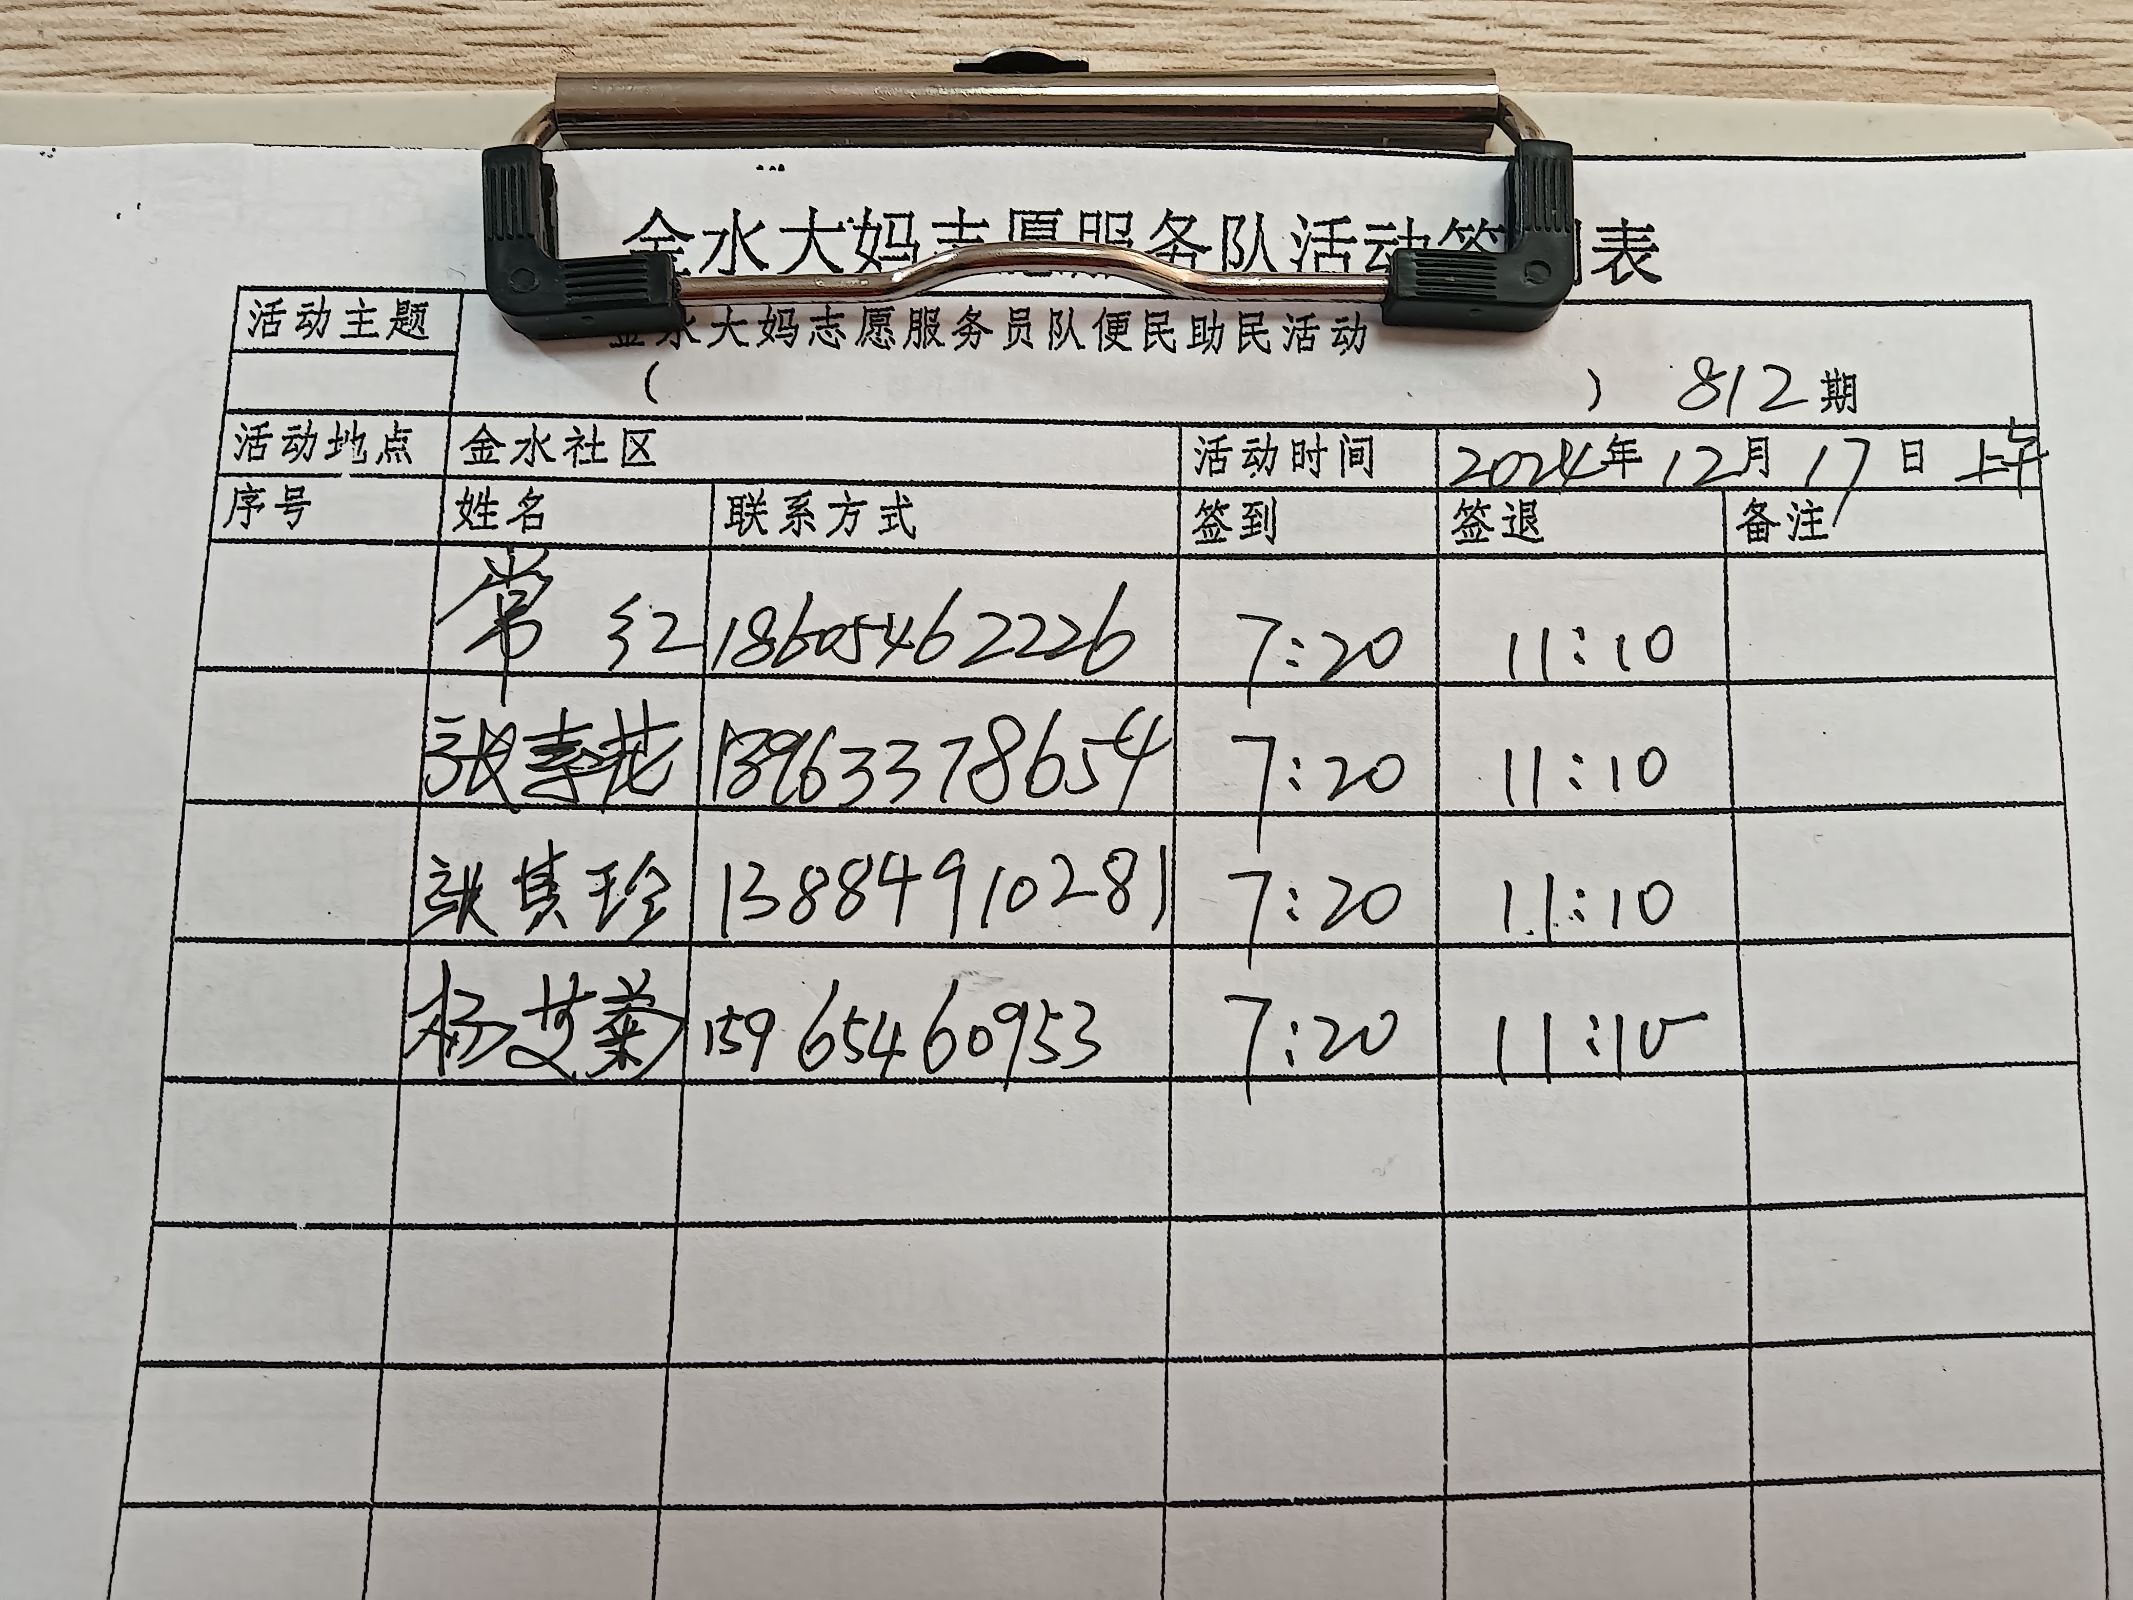 金水大妈志愿服务队活动签到表
活动主题 金水大妈志愿服务员队便民助民活动
( ) 812期
活动地点 金水社区 活动时间 2024年12月17日 上午
序号 姓名 联系方式 签到 签退 备注
常红 18605462226 7:20 11:10
张素花 13963378654 7:20 11:10
张其珍 13884910281 7:20 11:10
杨艾菊 15965460953 7:20 11:10